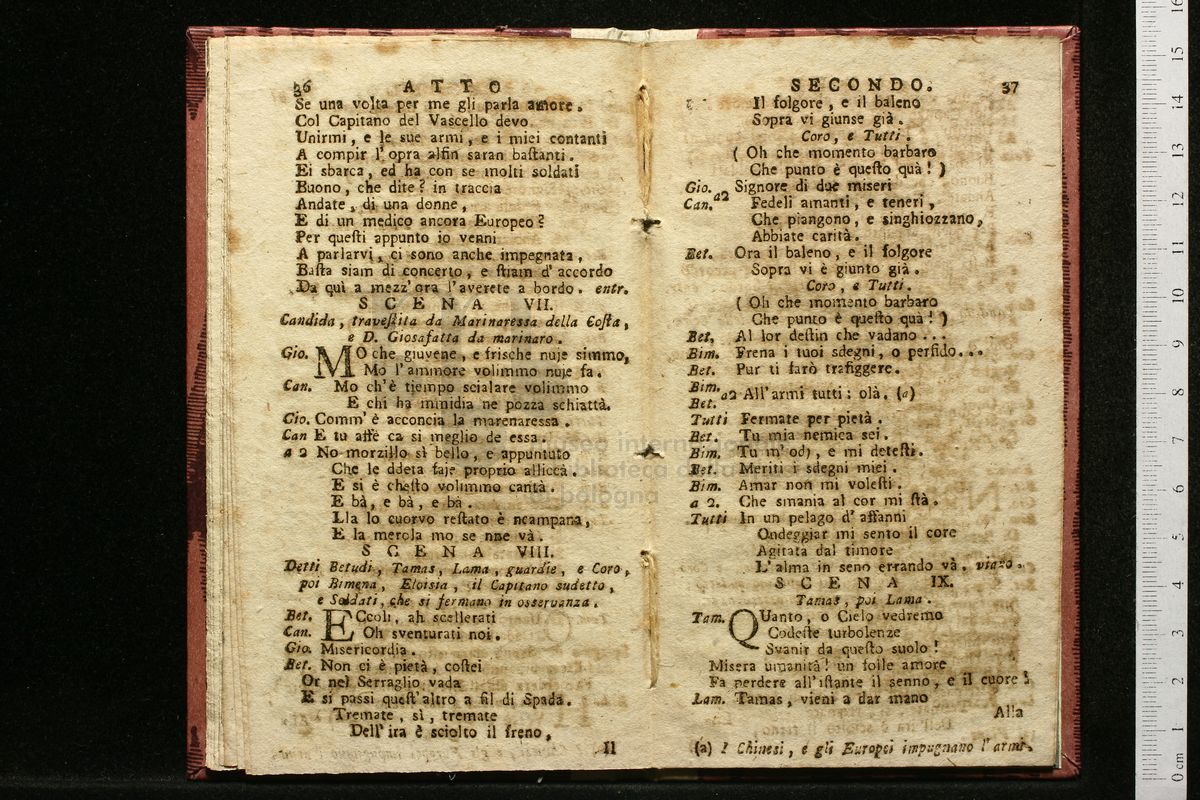 36 ATTO
Se una volta per me gli parla amore.
Col Capitano del Vascello devo
Unirmi, e le sue armi, e i miei contanti
A compir l'opra alfin saran baſtanti.
Ei sbarca, ed ha con se molti soldati
Buono, che dite? in traccia
Andate, di una donne,
E di un medico ancora Europeo?
Per queſti appunto io venni
A parlarvi, ci sono anche impegnata,
Baſta siam di concerto, e ſtiam d'accordo
Da quì a mezz'ora l'averete a bordo. entr.
SCENA VII.
Candida, traveſtita da Marinaressa della Coſta,
e D. Giosafatta da marinaro.
Gio. MO che giuvene, e frische nuje simmo,
Mo l'ammore volimmo nuje fa.
Can. Mo ch'è tjempo scialare volimmo
E chi ha minidia ne pozza schiattà.
Gio. Comm' è acconcia la marenaressa.
Can E tu affè ca si meglio de essa.
a 2 No morzillo sì bello, e appuntuto
Che le ddeta faje proprio alliccà.
E si è cheſto volimmo cantà.
E bà, e bà, e bà.
Lla lo cuorvo reſtato è ncampana,
E la merola mo se nne và.
SCENA VIII.
Detti Betudi, Tamas, Lama, guardie, e Coro,
poi Bimena, Eloisia, il Capitano sudetto,
e Soldati, che si fermano in osservanza.
Bet. ECcoli, ah scellerati
Can. Oh sventurati noi.
Gio. Misericordia.
Bet. Non ci è pietà, coſtei
Or nel Serraglio vada
E si passi queſt'altro a fil di Spada.
Tremate, sì, tremate
Dell'ira è sciolto il freno,
Il
SECONDO. 37
Il folgore, e il baleno
Sopra vi giunse già.
Coro, e Tutti.
( Oh che momento barbaro
Che punto è queſto quà! )
Gio. a2 Signore di due miseri
Can. Fedeli amanti, e teneri,
Che piangono, e singhiozzano,
Abbiate carità.
Bet. Ora il baleno, e il folgore
Sopra vi è giunto già.
Coro, e Tutti.
( Oh che momento barbaro
Che punto è queſto quà! )
Bet, Al lor deſtin che vadano...
Bim. Frena i tuoi sdegni, o perfido...
Bet. Pur ti farò trafiggere.
Bim.
Bet. a2 All'armi tutti: olà. (a)
Tutti Fermate per pietà.
Bet. Tu mia nemica sei.
Bim. Tu m'odj, e mi deteſti.
Bet. Meriti i sdegni miei.
Bim. Amar non mi voleſti.
a 2. Che smania al cor mi ſtà.
Tutti In un pelago d'affanni
Ondeggiar mi sento il core
Agitata dal timore
L'alma in seno errando và. viano.
SCENA IX.
Tamas, poi Lama.
Tam. QUanto, o Cielo vedremo
Codeſte turbolenze
Svanir da queſto suolo!
Misera umanità! un folle amore
Fa perdere all'iſtante il senno, e il cuore!
Lam. Tamas, vieni a dar mano
Alla
(a) I Chinesi, e gli Europei impugnano l'armi.